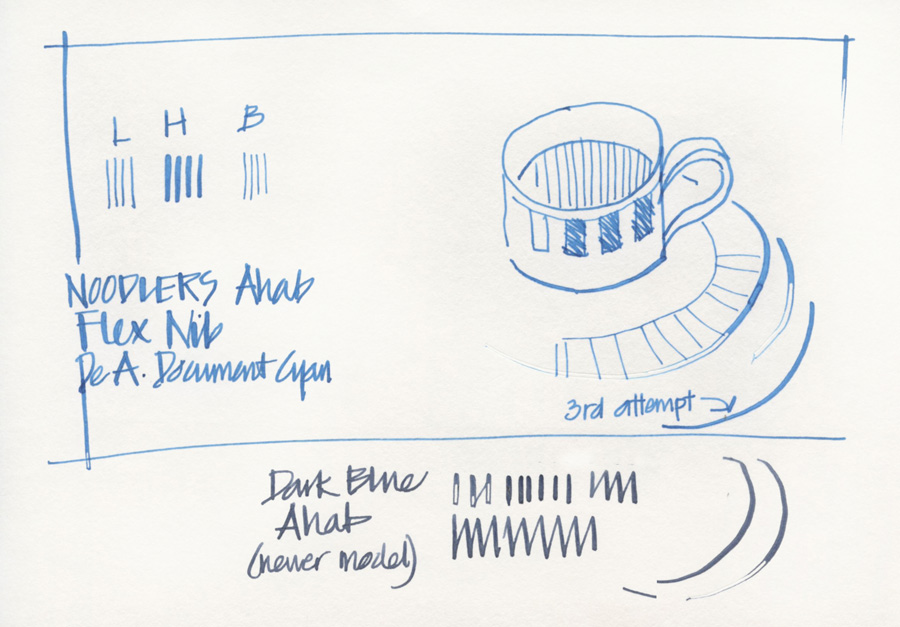 L H B
NOODLERS Ahab
Flex Nib
De A. Document Cyan
3rd attempt
Dark Blue
Ahab
(newer model)